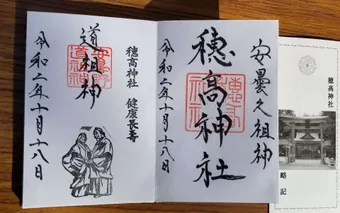 安曇之祖神
穂髙神社
令和二年十月十八日
穂高神社 健康長寿
道祖神
令和二年十月十八日
穂高神社
略記